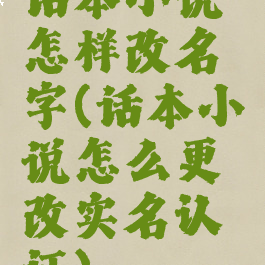 话本小说
怎样改名
字(话本小
说怎么更
改实名认
证)